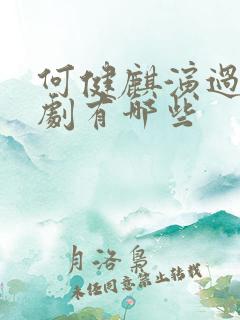 何健麒演過
劇有哪些
月洛梟
未经同意禁止转载